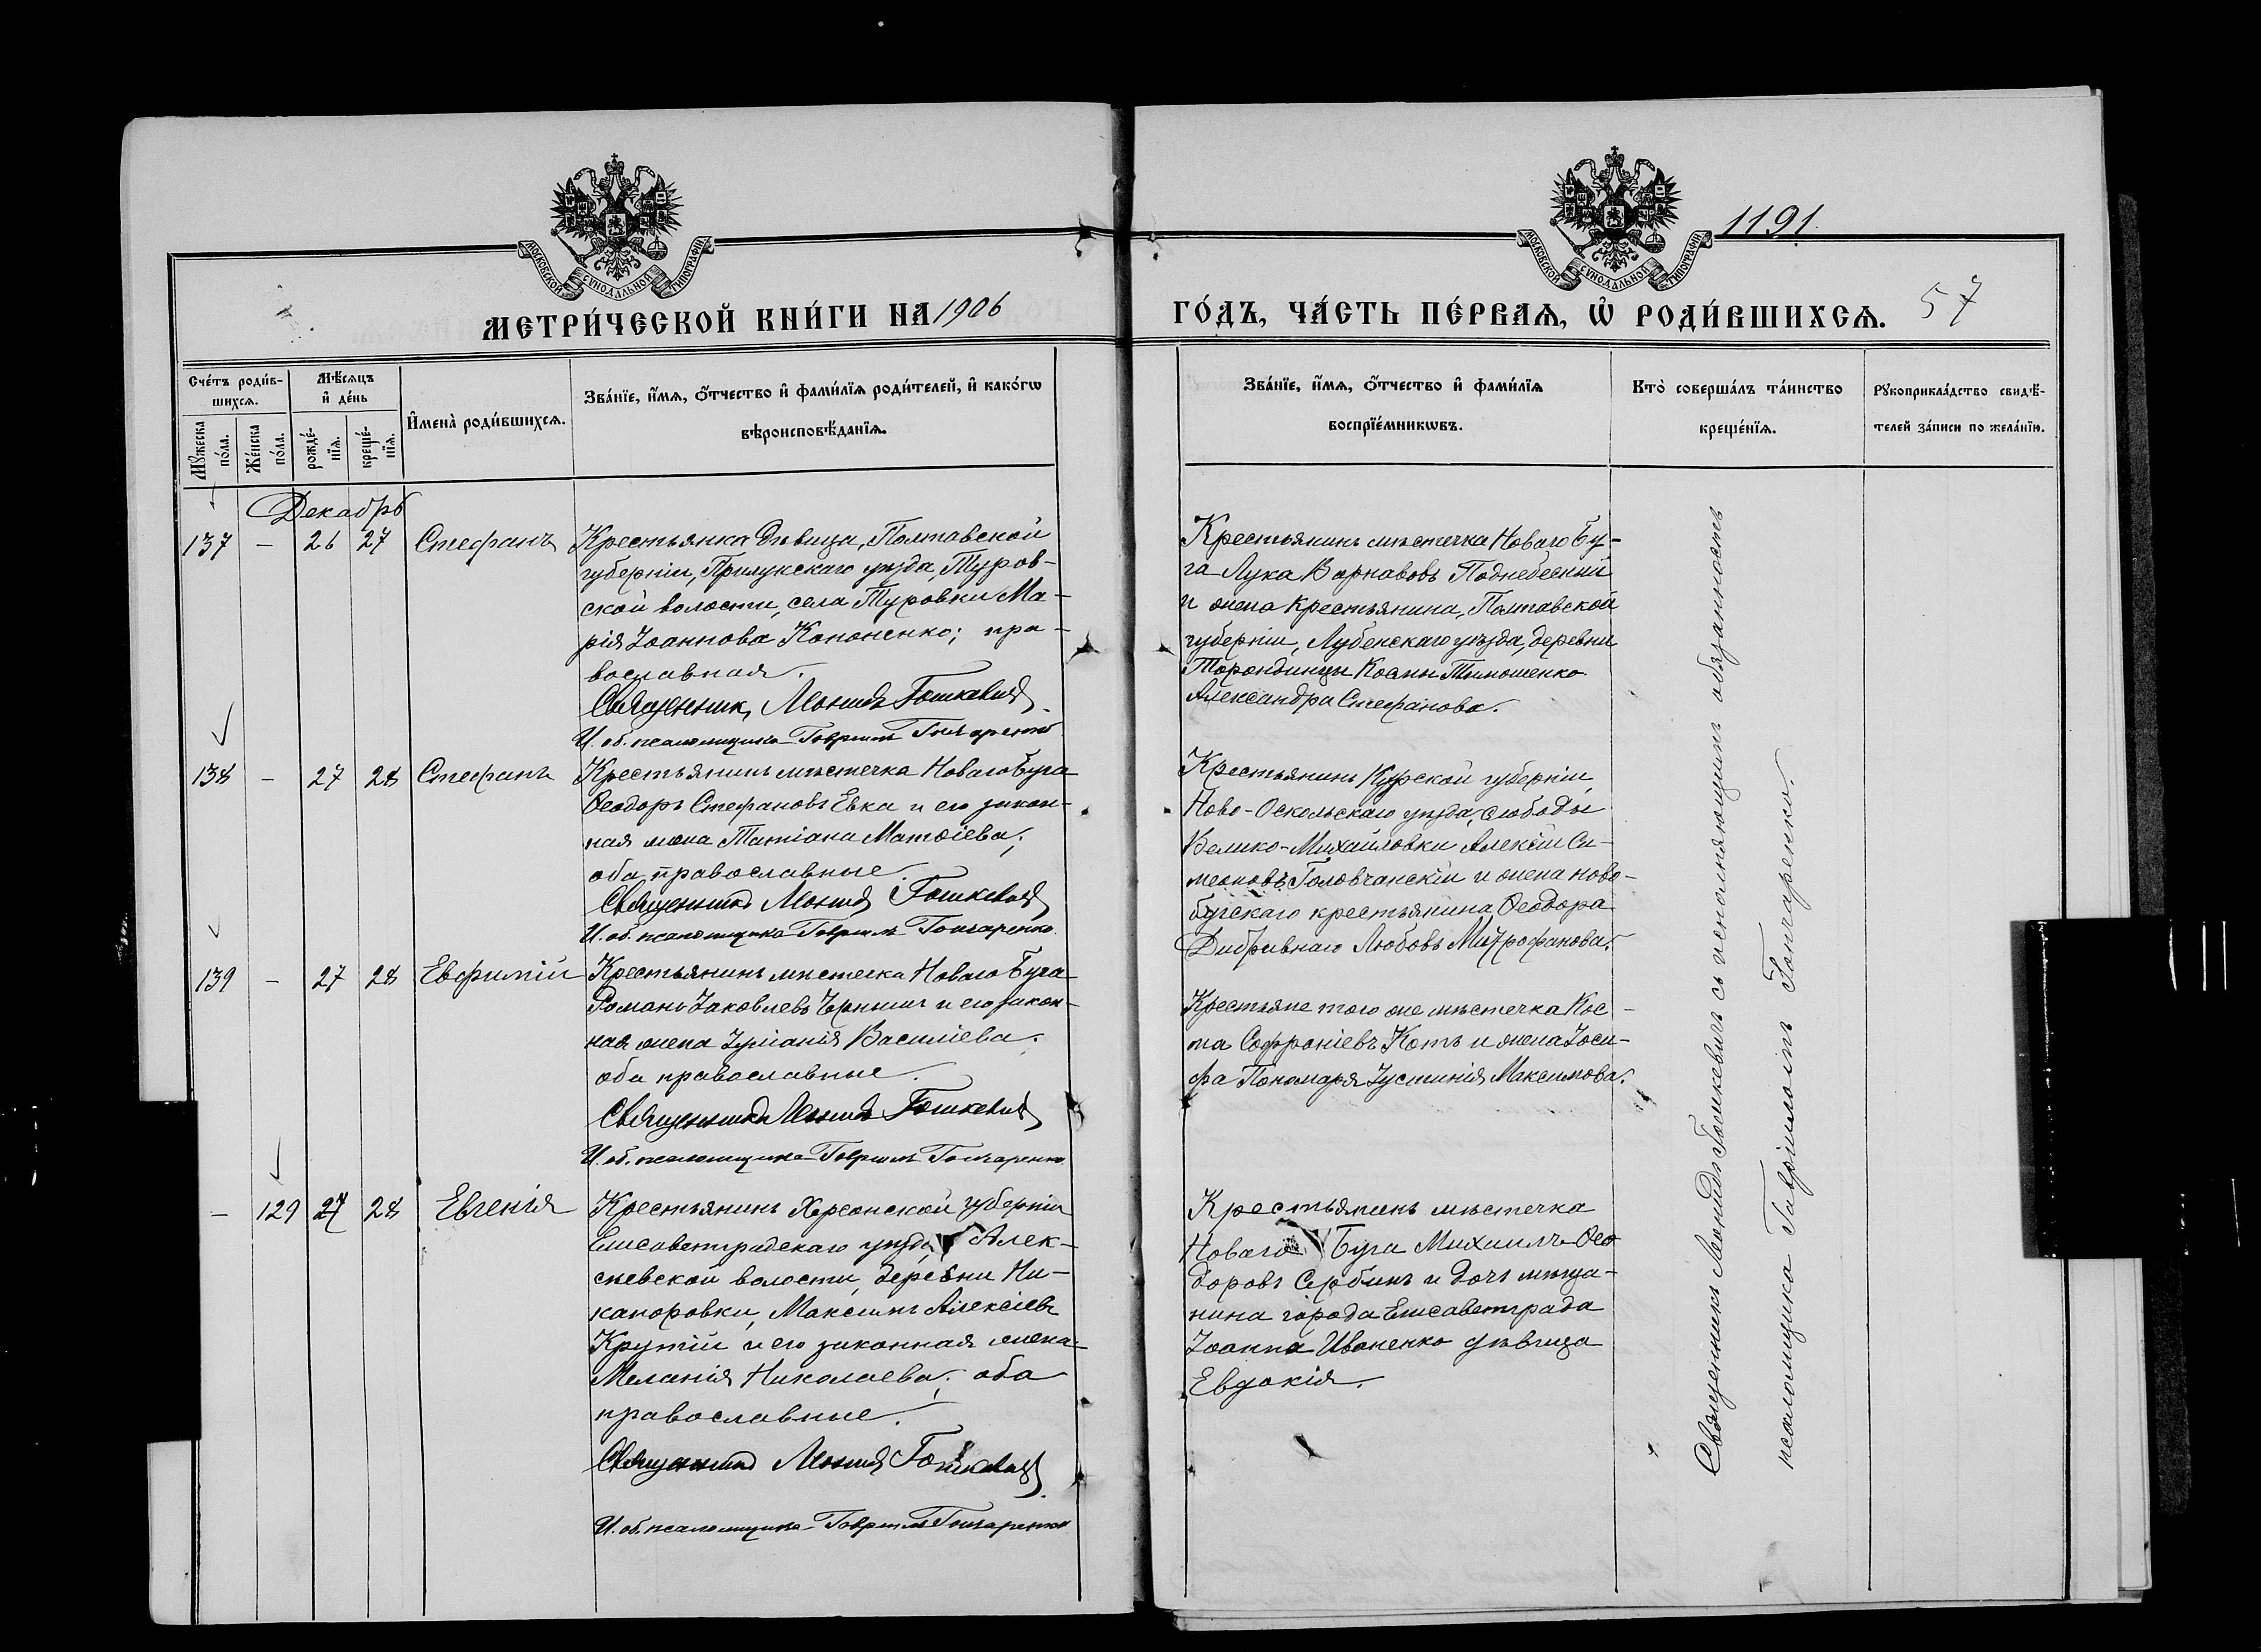 1191
57
МОСКОВСКОЙ СѴНОДАЛЬНОЙ ТИПОГРАФІИ
МОСКОВСКОЙ СѴНОДАЛЬНОЙ ТИПОГРАФІИ
МЕТРИ́ЧЕСКОЙ КНИ́ГИ НА 1906
ГО́ДЪ, ЧА́СТЬ ПЕ́РВАѦ, Ѽ РОДИ́ВШИХСѦ.
Сче́тъ роди́в-
шихсѧ.
Мꙋжеска по́ла.
Же́нска по́ла.
Мѣ́сѧцъ и҆ де́нь
рожде́-
нїѧ.
креще́-
нїѧ.
И҆мена̀ роди́вшихсѧ.
Зва́нїе, и҆́мѧ, ѻ҆́тчество и҆ фами́лїѧ роди́телей, и҆ како́гѡ
вѣроисповѣ́данїѧ.
Зва́нїе, и҆́мѧ, ѻ҆́тчество и҆ фами́лїѧ
воспрїе́мникѡвъ.
Кто̀ соверша́лъ та́инство
креще́нїѧ.
Рꙋкоприкла́дство свидѣ́-
телей за́писи по жела́нїю.
Декабрь
137 – 26 27 Стефанъ
Крестьянка дѣвица, Полтавской
губерніи, Прилукскаго уѣзда, Туров-
ской волости, села Туровки Ма-
рія Іоаннова Кононенко; пра-
вославная.
Священникъ Леонидъ Гошкевичъ
И. об. псаломщика Гавріилъ Гончаренко
Крестьянинъ мѣстечка Новаго Бу-
га Лука Варнавовъ Поднебесный
и жена крестьянина, Полтавской
губерніи, Лубенскаго уѣзда, деревни
Торондинцы Космы Тимошенко
Александра Стефанова.
138 – 27 28 Стефанъ
Крестьянинъ мѣстечка Новаго Буга
Ѳеодоръ Стефановъ Евка и его закон-
ная жена Татіана Матѳіева;
оба православные.
Священникъ Леонидъ Гошкевичъ
И. об. псаломщика Гавріилъ Гончаренко
Крестьянинъ Курской губерніи,
Ново-Оскольскаго уѣзда, слободы
Велико-Михайловки Алексій Си-
меоновъ Головчанскій и жена ново-
бугскаго крестьянина Ѳеодора
Дибривнаго Любовь Митрофанова.
139 – 27 28 Евфимій
Крестьянинъ мѣстечка Новаго Буга
Романъ Іаковлевъ Чернышъ и его закон-
ная жена Іуліанія Василіева;
оба православные.
Священникъ Леонидъ Гошкевичъ
И. об. псаломщика Гавріилъ Гончаренко
Крестьяне того же мѣстечка Кос-
ма Софроніевъ Котъ и жена Іоси-
фа Пономаря Іустинія Максимова.
– 129 27 28 Евгенія
Крестьянинъ Херсонской губерніи
Елисаветградскаго уѣзда, Алек-
сѣевской волости, деревни Ни-
каноровки, Максимъ Алексіевъ
Крутій и его законная жена
Меланія Николаева; оба
православные.
Священникъ Леонидъ Гошкевичъ
И. об. псаломщика Гавріилъ Гончаренко
Крестьянинъ мѣстечка
Новаго Буга Михаилъ Ѳео-
доровъ Сербинъ и дочь мѣща-
нина города Елисаветграда
Іоанна Иваненко дѣвица
Евдокія.
Священникъ Леонидъ Гошкевичъ съ исполняющимъ обязанность
псаломщика Гавріиломъ Гончаренко.